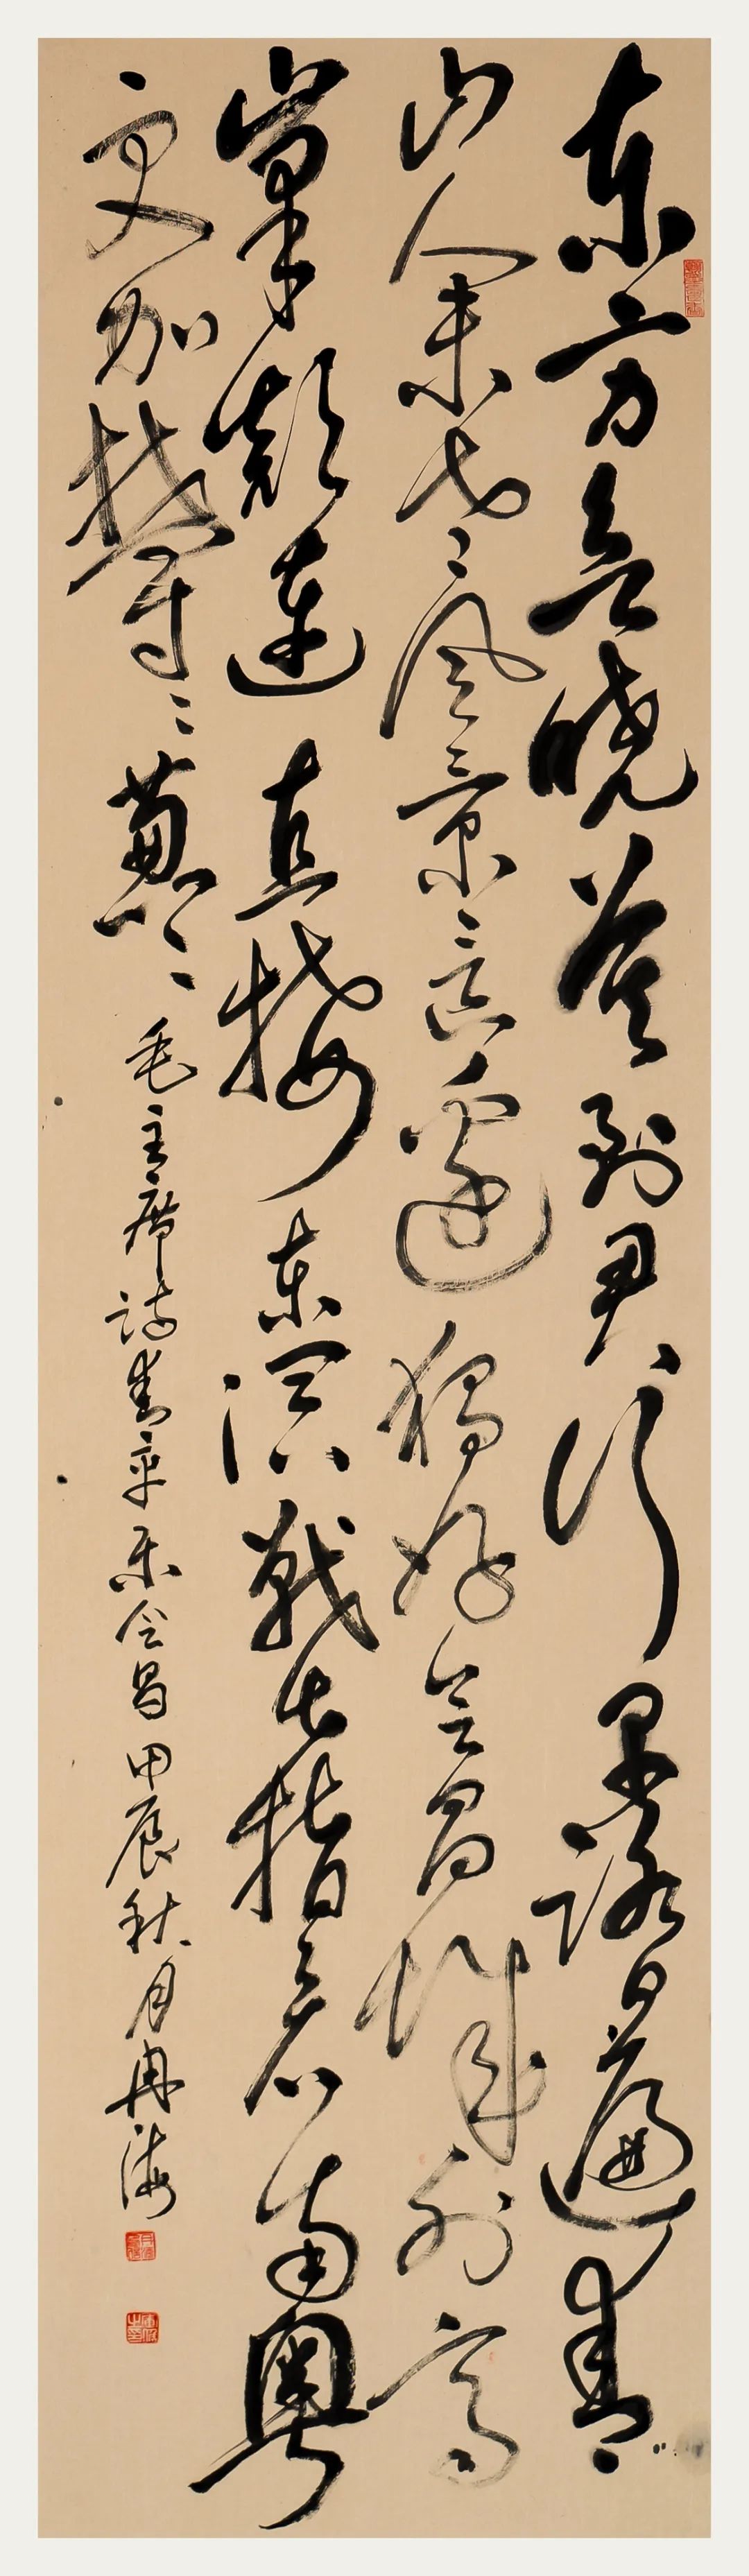 东方欲晓莫道君行早踏遍青
山人未老风景这边独好会昌城外高
峰颠连直接东溟战士指看南粤
更加郁〻葱〻毛主席诗清平乐会昌甲辰秋月冉海